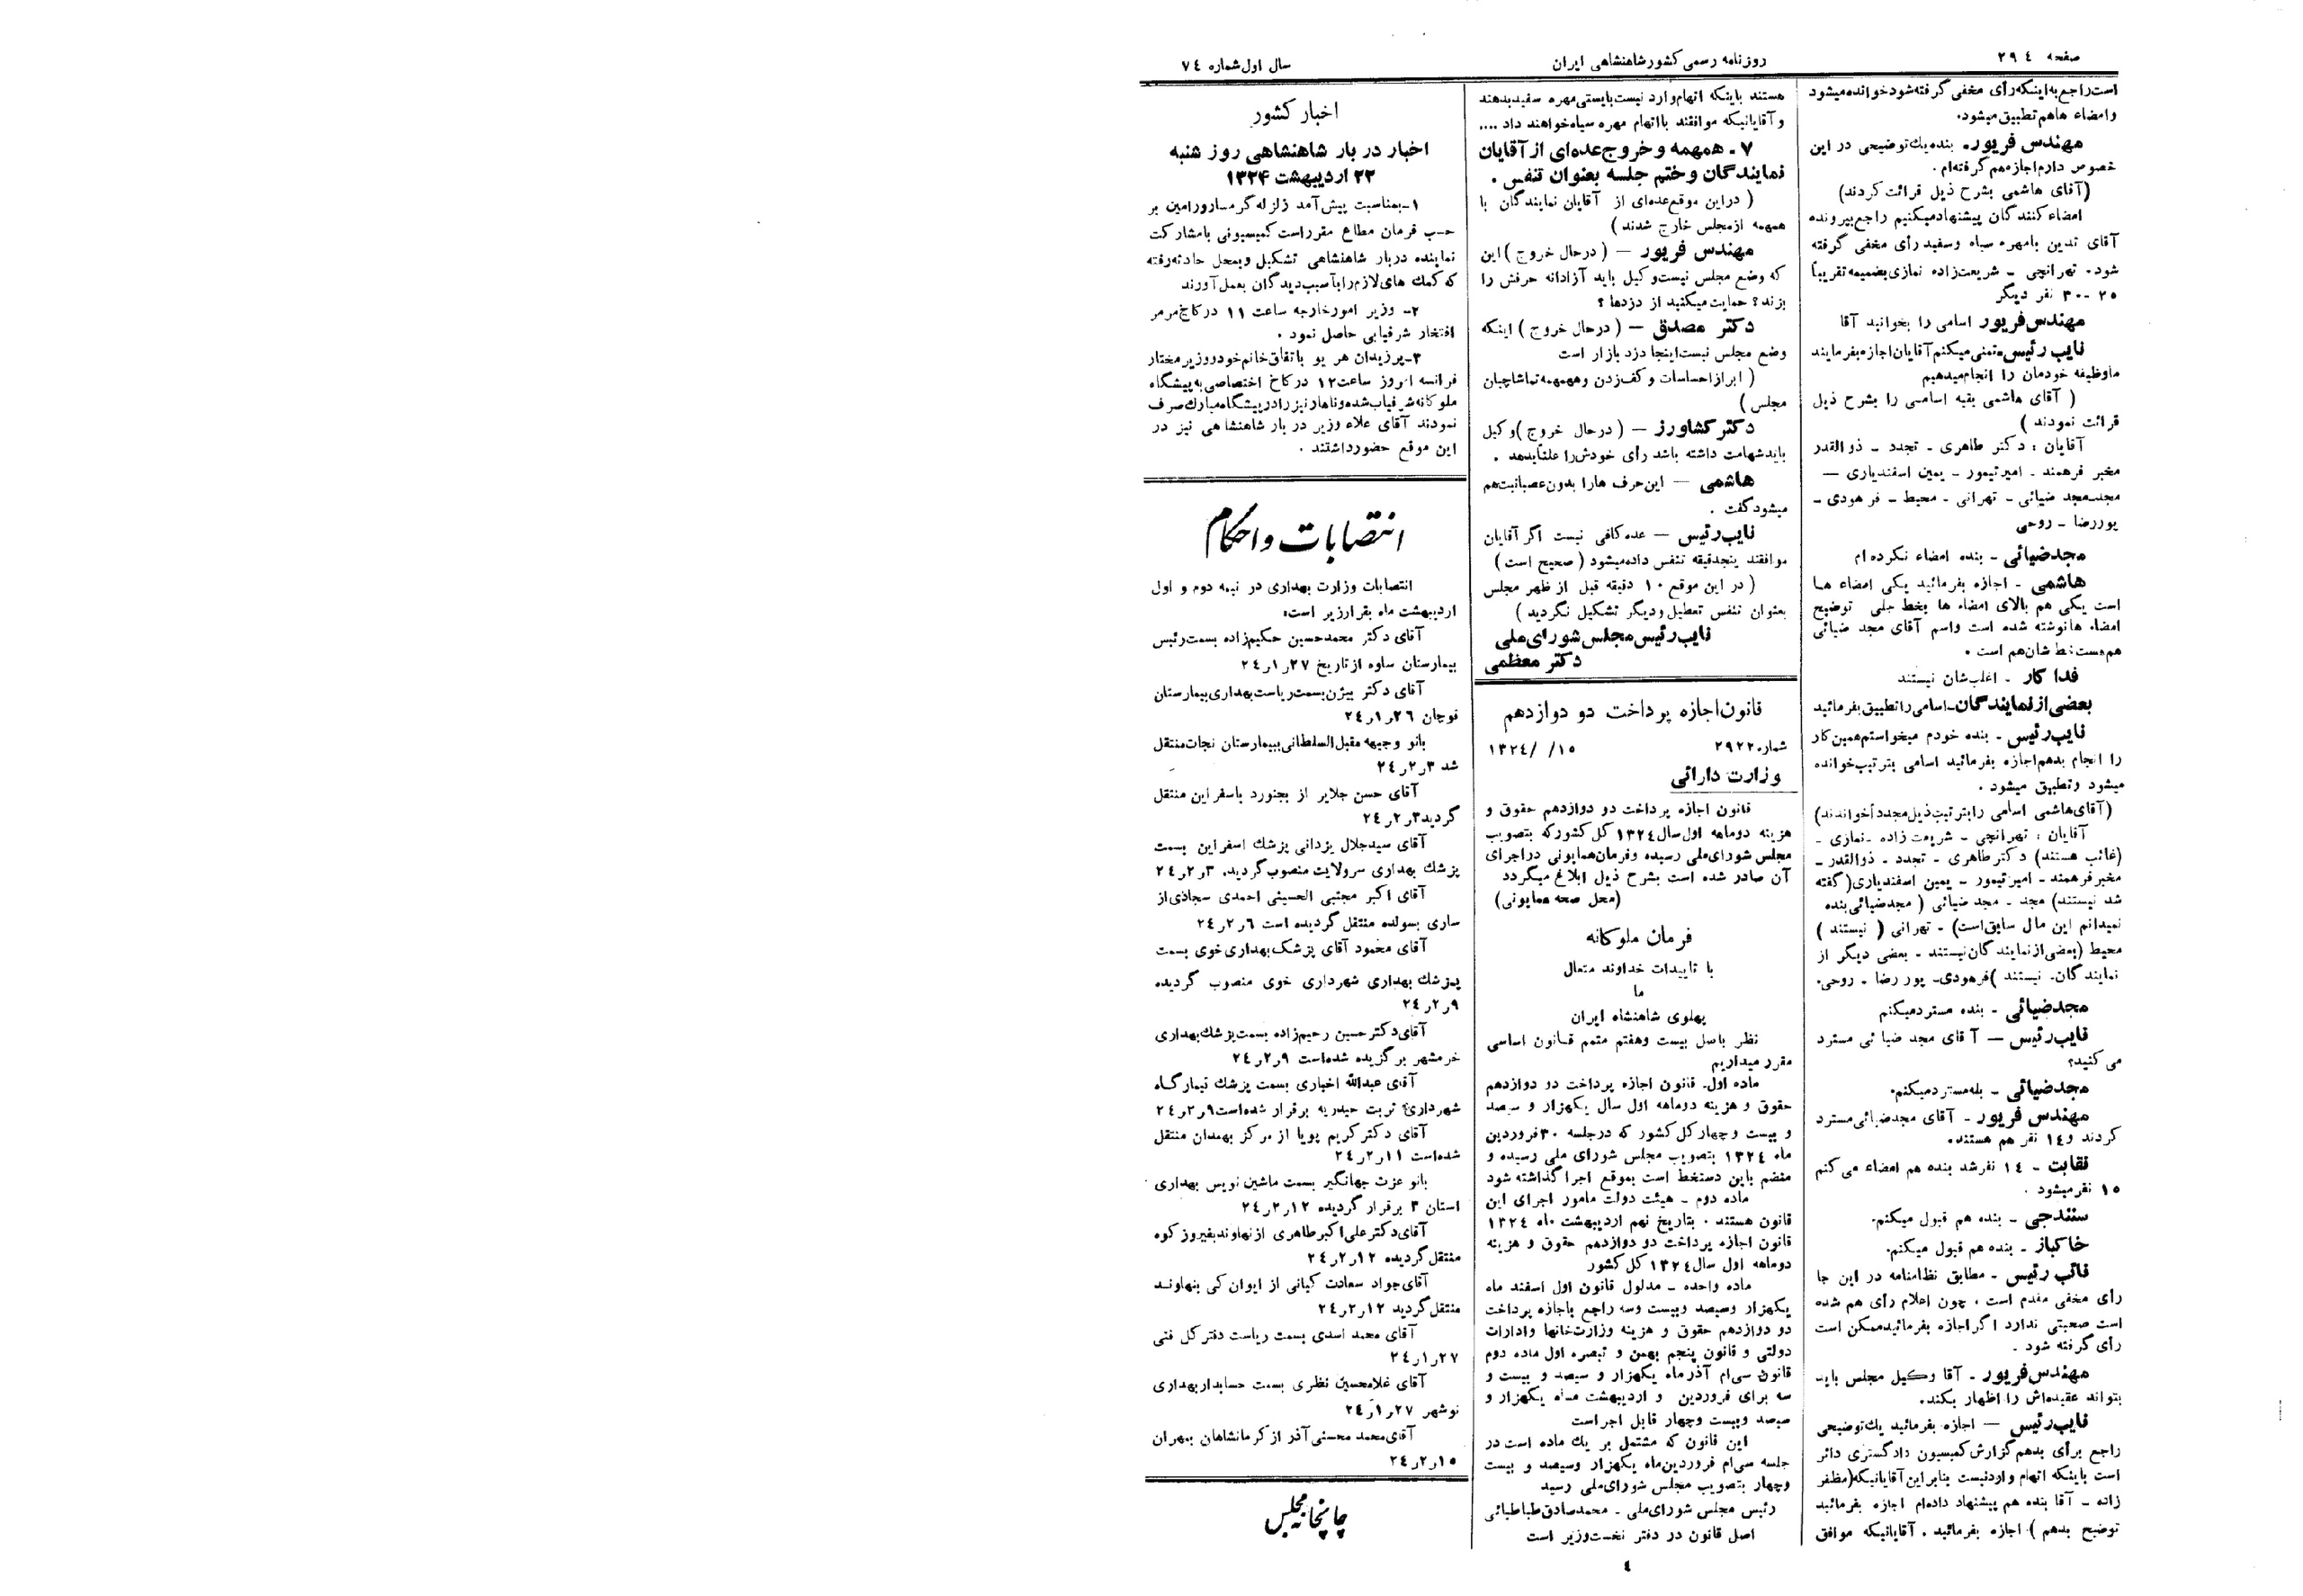 صفحه ۲۹٤
روزنامه رسمی کشور شاهنشاهی ایران
سال اول شماره ۷٤
است راجع به اینکه رأی مخفی گرفته شود خوانده میشود
و امضاء ها هم تطبیق میشود.
مهندس فریور. بنده یك توضیحی در این
خصوص دارم اجازه هم گرفته‌ام.
(آقای هاشمی بشرح ذیل قرائت کردند)
امضاء کنندگان پیشنهاد میکنیم راجع بپرونده
آقای تدین بامهره سیاه وسفید رأی مخفی گرفته
شود. تهرانچی ـ شریعت‌زاده نمازی بضمیمه تقریباً
۲۵ -۳۰ نفر دیگر
مهندس فریور اسامی را بخوانید آقا
نایب رئیس ـ تمنی میکنم آقایان اجازه بفرمایند
ما وظیفه خودمان را انجام میدهیم
( آقای هاشمی بقیه اسامی را بشرح ذیل
قرائت نمودند )
آقایان : دکتر طاهری ـ تجدد ـ ذوالقدر
مخبر فرهمند ـ امیر تیمور ـ یمین اسفندیاری —
مجد ـ مجد ضیائی ـ تهرانی ـ محیط ـ فرهودی ـ
پوررضا ـ روحی
مجد ضیائی ـ بنده امضاء نکرده ام
هاشمی ـ اجازه بفرمائید یکی امضاء ها
است یکی هم بالای امضاء ها بخط جلی توضیح
امضاء ها نوشته شده است واسم آقای مجد ضیائی
هم دست خط شان هم است .
فداکار ـ اغلب شان نیستند
بعضی از نمایندگان ـ اسامی را تطبیق بفرمائید
نایب رئیس ـ بنده خودم میخواستم همین کار
را انجام بدهم اجازه بفرمائید اسامی بترتیب خوانده
میشود و تطبیق میشود .
(آقای هاشمی اسامی را بترتیب ذیل مجدداً خواندند)
آقایان : تهرانچی ـ شریعت زاده ـ نمازی ـ
(غائب هستند) دکتر طاهری ـ تجدد ـ ذوالقدر ـ
مخبر فرهمند ـ امیر تیمور ـ یمین اسفندیاری (گفته
شد نیستند) مجد ـ مجد ضیائی ( مجد ضیائی بنده
نمیدانم این مال سابق است) ـ تهرانی ( نیستند )
محیط (بعضی از نمایندگان نیستند ـ بعضی دیگر از
نمایندگان ـ نیستند ) فرهودی ـ پور رضا ـ روحی.
مجد ضیائی ـ بنده مسترد میکنم
نایب رئیس — آقای مجد ضیائی مسترد
می کنید؟
مجد ضیائی ـ بله مسترد میکنم.
مهندس فریور ـ آقای مجد ضیائی مسترد
کردند و ۱٤ نفر هم هستند.
نقابت ـ ۱٤ نفر شد بنده هم امضاء می کنم
۱۵ نفر میشود .
سنندجی ـ بنده هم قبول میکنم.
خاکباز ـ بنده هم قبول میکنم.
نائب رئیس ـ مطابق نظامنامه در این جا
رأی مخفی مقدم است . چون اعلام رأی هم شده
است صحبتی ندارد اگر اجازه بفرمائید ممکن است
رأی گرفته شود .
مهندس فریور ـ آقا وکیل مجلس باید
بتواند عقیده‌اش را اظهار بکند.
نایب رئیس — اجازه بفرمائید یك توضیحی
راجع برأی بدهم گزارش کمیسیون دادگستری دائر
است باینکه اتهام وارد نیست بنابر این آقایانیکه (مظفر
زاده ـ آقا بنده هم پیشنهاد داده‌ام اجازه بفرمائید
توضیح بدهم ) اجازه بفرمائید . آقایانیکه موافق
هستند باینکه اتهام وارد نیست بایستی مهره سفید بدهند
و آقایانیکه موافقند با اتهام مهره سیاه خواهند داد ....
۷ ـ همهمه و خروج عده‌ای از آقایان
نمایندگان و ختم جلسه بعنوان تنفس .
( در این موقع عده‌ای از آقایان نمایندگان با
همهمه از مجلس خارج شدند )
مهندس فریور — ( در حال خروج ) این
که وضع مجلس نیست وکیل باید آزادانه حرفش را
بزند ؟ حمایت میکنید از دزدها ؟
دکتر مصدق — ( در حال خروج ) اینکه
وضع مجلس نیست اینجا دزد بازار است
( ابراز احساسات و کف زدن و همهمه تماشاچیان
مجلس )
دکتر کشاورز — ( در حال خروج ) وکیل
باید شهامت داشته باشد رأی خودش را علناً بدهد .
هاشمی — این حرف ها را بدون عصبانیت هم
میشود گفت .
نایب رئیس — عده کافی نیست اگر آقایان
موافقند پنجدقیقه تنفس داده میشود ( صحیح است )
( در این موقع ۱۰ دقیقه قبل از ظهر مجلس
بعنوان تنفس تعطیل و دیگر تشکیل نگردید )
نایب رئیس مجلس شورای ملی
دکتر معظمی
قانون اجازه پرداخت دو دوازدهم
شماره ۲۹۲۲ ۱۵/ /۱۳۲٤
وزارت دارائی
قانون اجازه پرداخت دو دوازدهم حقوق و
هزینه دوماهه اول سال ۱۳۲٤ کل کشور که بتصویب
مجلس شورای ملی رسیده و فرمان همایونی در اجرای
آن صادر شده است بشرح ذیل ابلاغ میگردد
(محل صحه همایونی)
فرمان ملوکانه
با تاییدات خداوند متعال
ما
پهلوی شاهنشاه ایران
نظر باصل بیست وهفتم متمم قانون اساسی
مقرر میداریم
ماده اول ـ قانون اجازه پرداخت دو دوازدهم
حقوق و هزینه دوماهه اول سال یکهزار و سیصد
و بیست و چهار کل کشور که در جلسه ۳۰ فروردین
ماه ۱۳۲٤ بتصویب مجلس شورای ملی رسیده و
منضم باین دستخط است بموقع اجرا گذاشته شود
ماده دوم ـ هیئت دولت مامور اجرای این
قانون هستند . بتاریخ نهم اردیبهشت ماه ۱۳۲٤
قانون اجازه پرداخت دو دوازدهم حقوق و هزینه
دوماهه اول سال ۱۳۲٤ کل کشور
ماده واحده ـ مدلول قانون اول اسفند ماه
یکهزار وسیصد وبیست وسه راجع باجازه پرداخت
دو دوازدهم حقوق و هزینه وزارت‌خانها و ادارات
دولتی و قانون پنجم بهمن و تبصره اول ماده دوم
قانون سی‌ام آذر ماه یکهزار و سیصد و بیست و
سه برای فروردین و اردیبهشت ماه یکهزار و
سیصد وبیست وچهار قابل اجر است
این قانون که مشتمل بر یك ماده است در
جلسه سی‌ام فروردین‌ماه یکهزار وسیصد و بیست
وچهار بتصویب مجلس شورای ملی رسید
رئیس مجلس شورای ملی ـ محمد صادق طباطبائی
اصل قانون در دفتر نخست‌وزیر است
اخبار کشور
اخبار در بار شاهنشاهی روز شنبه
۲۲ اردیبهشت ۱۳۲۴
۱ـ بمناسبت پیش آمد زلزله گرمسار و ورامین بر
حسب فرمان مطاع مقرر است کمیسیونی با مشارکت
نماینده دربار شاهنشاهی تشکیل وبمحل حادثه رفته
که کمك های لازم را بآسیب دیدگان بعمل آورند
۲ـ وزیر امور خارجه ساعت ۱۱ در کاخ مرمر
افتخار شرفیابی حاصل نمود .
۳ـ پرزیدان هر یو باتفاق خانم خود و وزیر مختار
فرانسه امروز ساعت ۱۲ در کاخ اختصاصی به پیشگاه
ملوکانه شرفیاب شده و ناهار نیز را در پیشگاه مبارك صرف
نمودند آقای علاء وزیر در بار شاهنشاهی نیز در
این موقع حضور داشتند .
انتصابات و احکام
انتصابات وزارت بهداری در نیمه دوم و اول
اردیبهشت ماه بقرار زیر است:
آقای دکتر محمد حسین حکیم‌زاده بسمت رئیس
بیمارستان ساوه از تاریخ ۲۷ر۱ر۲٤
آقای دکتر بیژن بسمت ریاست بهداری بیمارستان
قوچان ۲٦ر۱ر۲٤
بانو وجیهه مقبل السلطانی ببیمارستان نجات منتقل
شد ۳ر۲ر۲٤
آقای حسن جلایر از بجنورد باسفراین منتقل
گردید ۳ر۲ر۲٤
آقای سیدجلال یزدانی پزشك اسفراین بسمت
پزشك بهداری سرولایت منصوب گردید. ۳ر۲ر۲٤
آقای اکبر مجتبی الحسینی احمدی سجادی از
ساری بسولده منتقل گردیده است ٦ر۲ر۲٤
آقای محمود آقای پزشك بهداری خوی بسمت
پزشك بهداری شهرداری خوی منصوب گردیده
۹ر۲ر۲٤
آقای دکتر حسین رحیم‌زاده بسمت پزشك بهداری
خرمشهر برگزیده شده‌است ۹ر۲ر۲٤
آقای عبدالله اخباری بسمت پزشك تیمارگاه
شهرداری تربت حیدریه برقرار شده‌است ۹ر۲ر۲٤
آقای دکتر کریم پویا از مرکز بهمدان منتقل
شده‌است ۱۱ر۲ر۲٤
بانو عزت جهانگیر بسمت ماشین نویس بهداری
استان ۳ برقرار گردیده ۱۲ر۲ر۲٤
آقای دکتر علی اکبر طاهری از نهاوند بفیروز کوه
منتقل گردیده ۱۲ر۲ر۲٤
آقای جواد سعادت کیانی از ایوان کی بنهاوند
منتقل گردید ۱۲ر۲ر۲٤
آقای محمد اسدی بسمت ریاست دفتر کل فنی
۲۷ر۱ر۲٤
آقای غلامحسین نظری بسمت حسابدار بهداری
نوشهر ۲۷ر۱ر۲٤
آقای محمد محسنی آذر از کرمانشاهان بتهران
۱۵ر۲ر۲٤
چاپخانه مجلس
٤